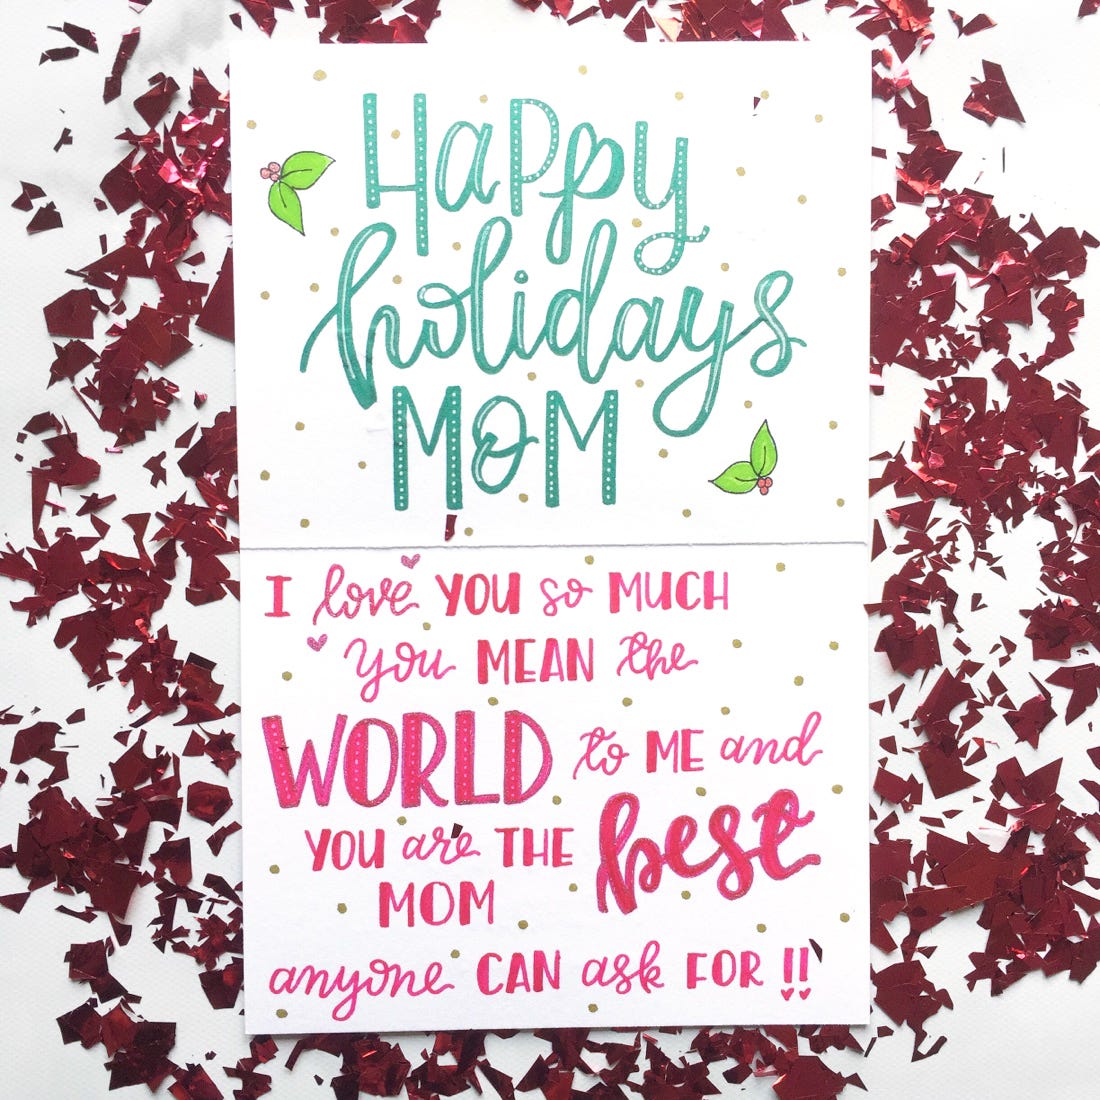 Happy
holidays
MOM
I love YOU so MUCH
you MEAN the
WORLD to ME and
YOU are THE best
MOM
anyone CAN ask FOR !!